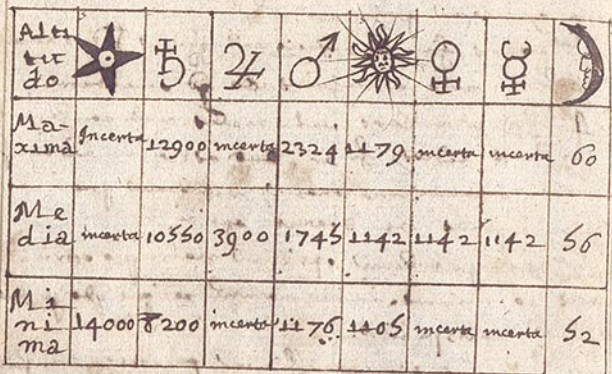 Alti
tu
do
♄ ♃ ♂ ♀ ☿
Ma-
xima Incerta 12900 incerta 2324 1179 incerta incerta 60
Me
dia incerta 10550 3900 1745 1142 1142 1142 56
Mi
ni
ma 14000 8200 incerta 1176 1105 incerta incerta 52